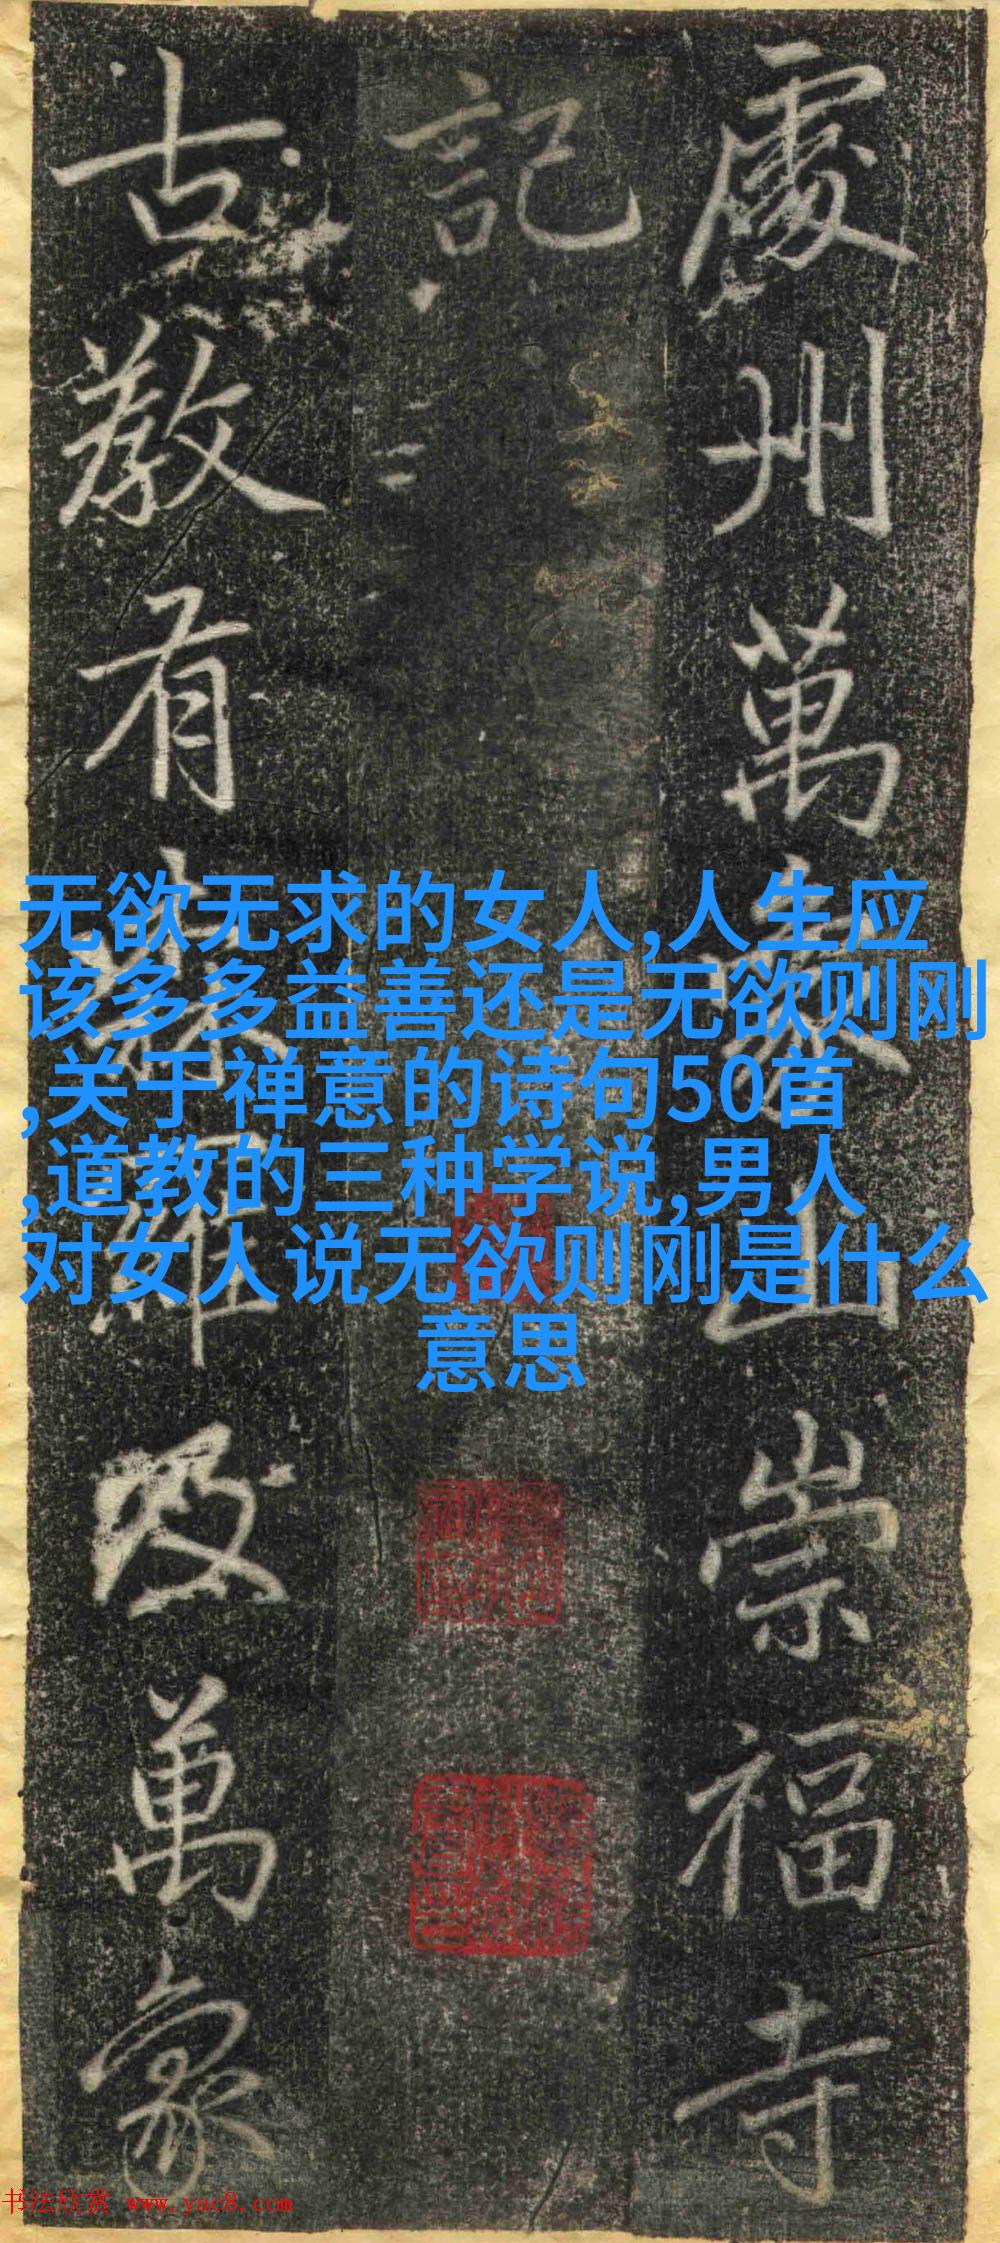 處州萬象山崇福寺
記
古教有森羅及萬象
无欲无求的女人,人生应
该多多益善还是无欲则刚
,关于禅意的诗句50首
,道教的三种学说,男人
对女人说无欲则刚是什么
意思
书法欣赏 www.yac8.com